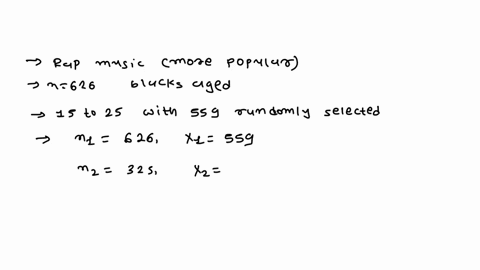 → Rap music (more popular)
→ n=626 blacks aged
→ 15 to 25 with 559 randomly selected
→ n1 = 626, x1 = 559
n2 = 325, x2 =